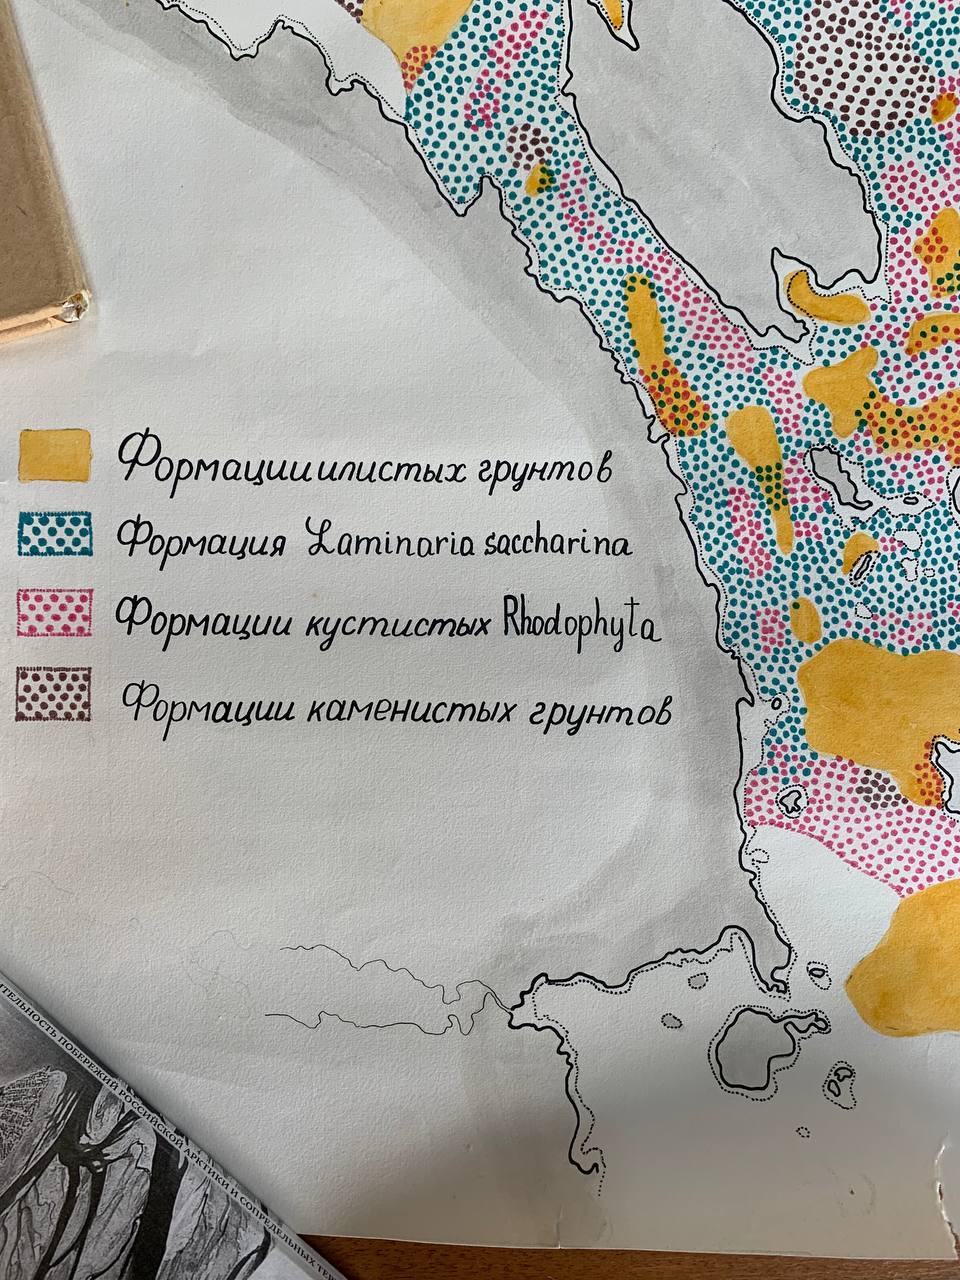 Формации илистых грунтов
Формация Laminaria saccharina
Формации кустистых Rhodophyta
Формации каменистых грунтов
ПОБЕРЕЖИЙ РОССИЙСКОЙ АРКТИКИ И СОПРЕДЕЛЬНЫХ